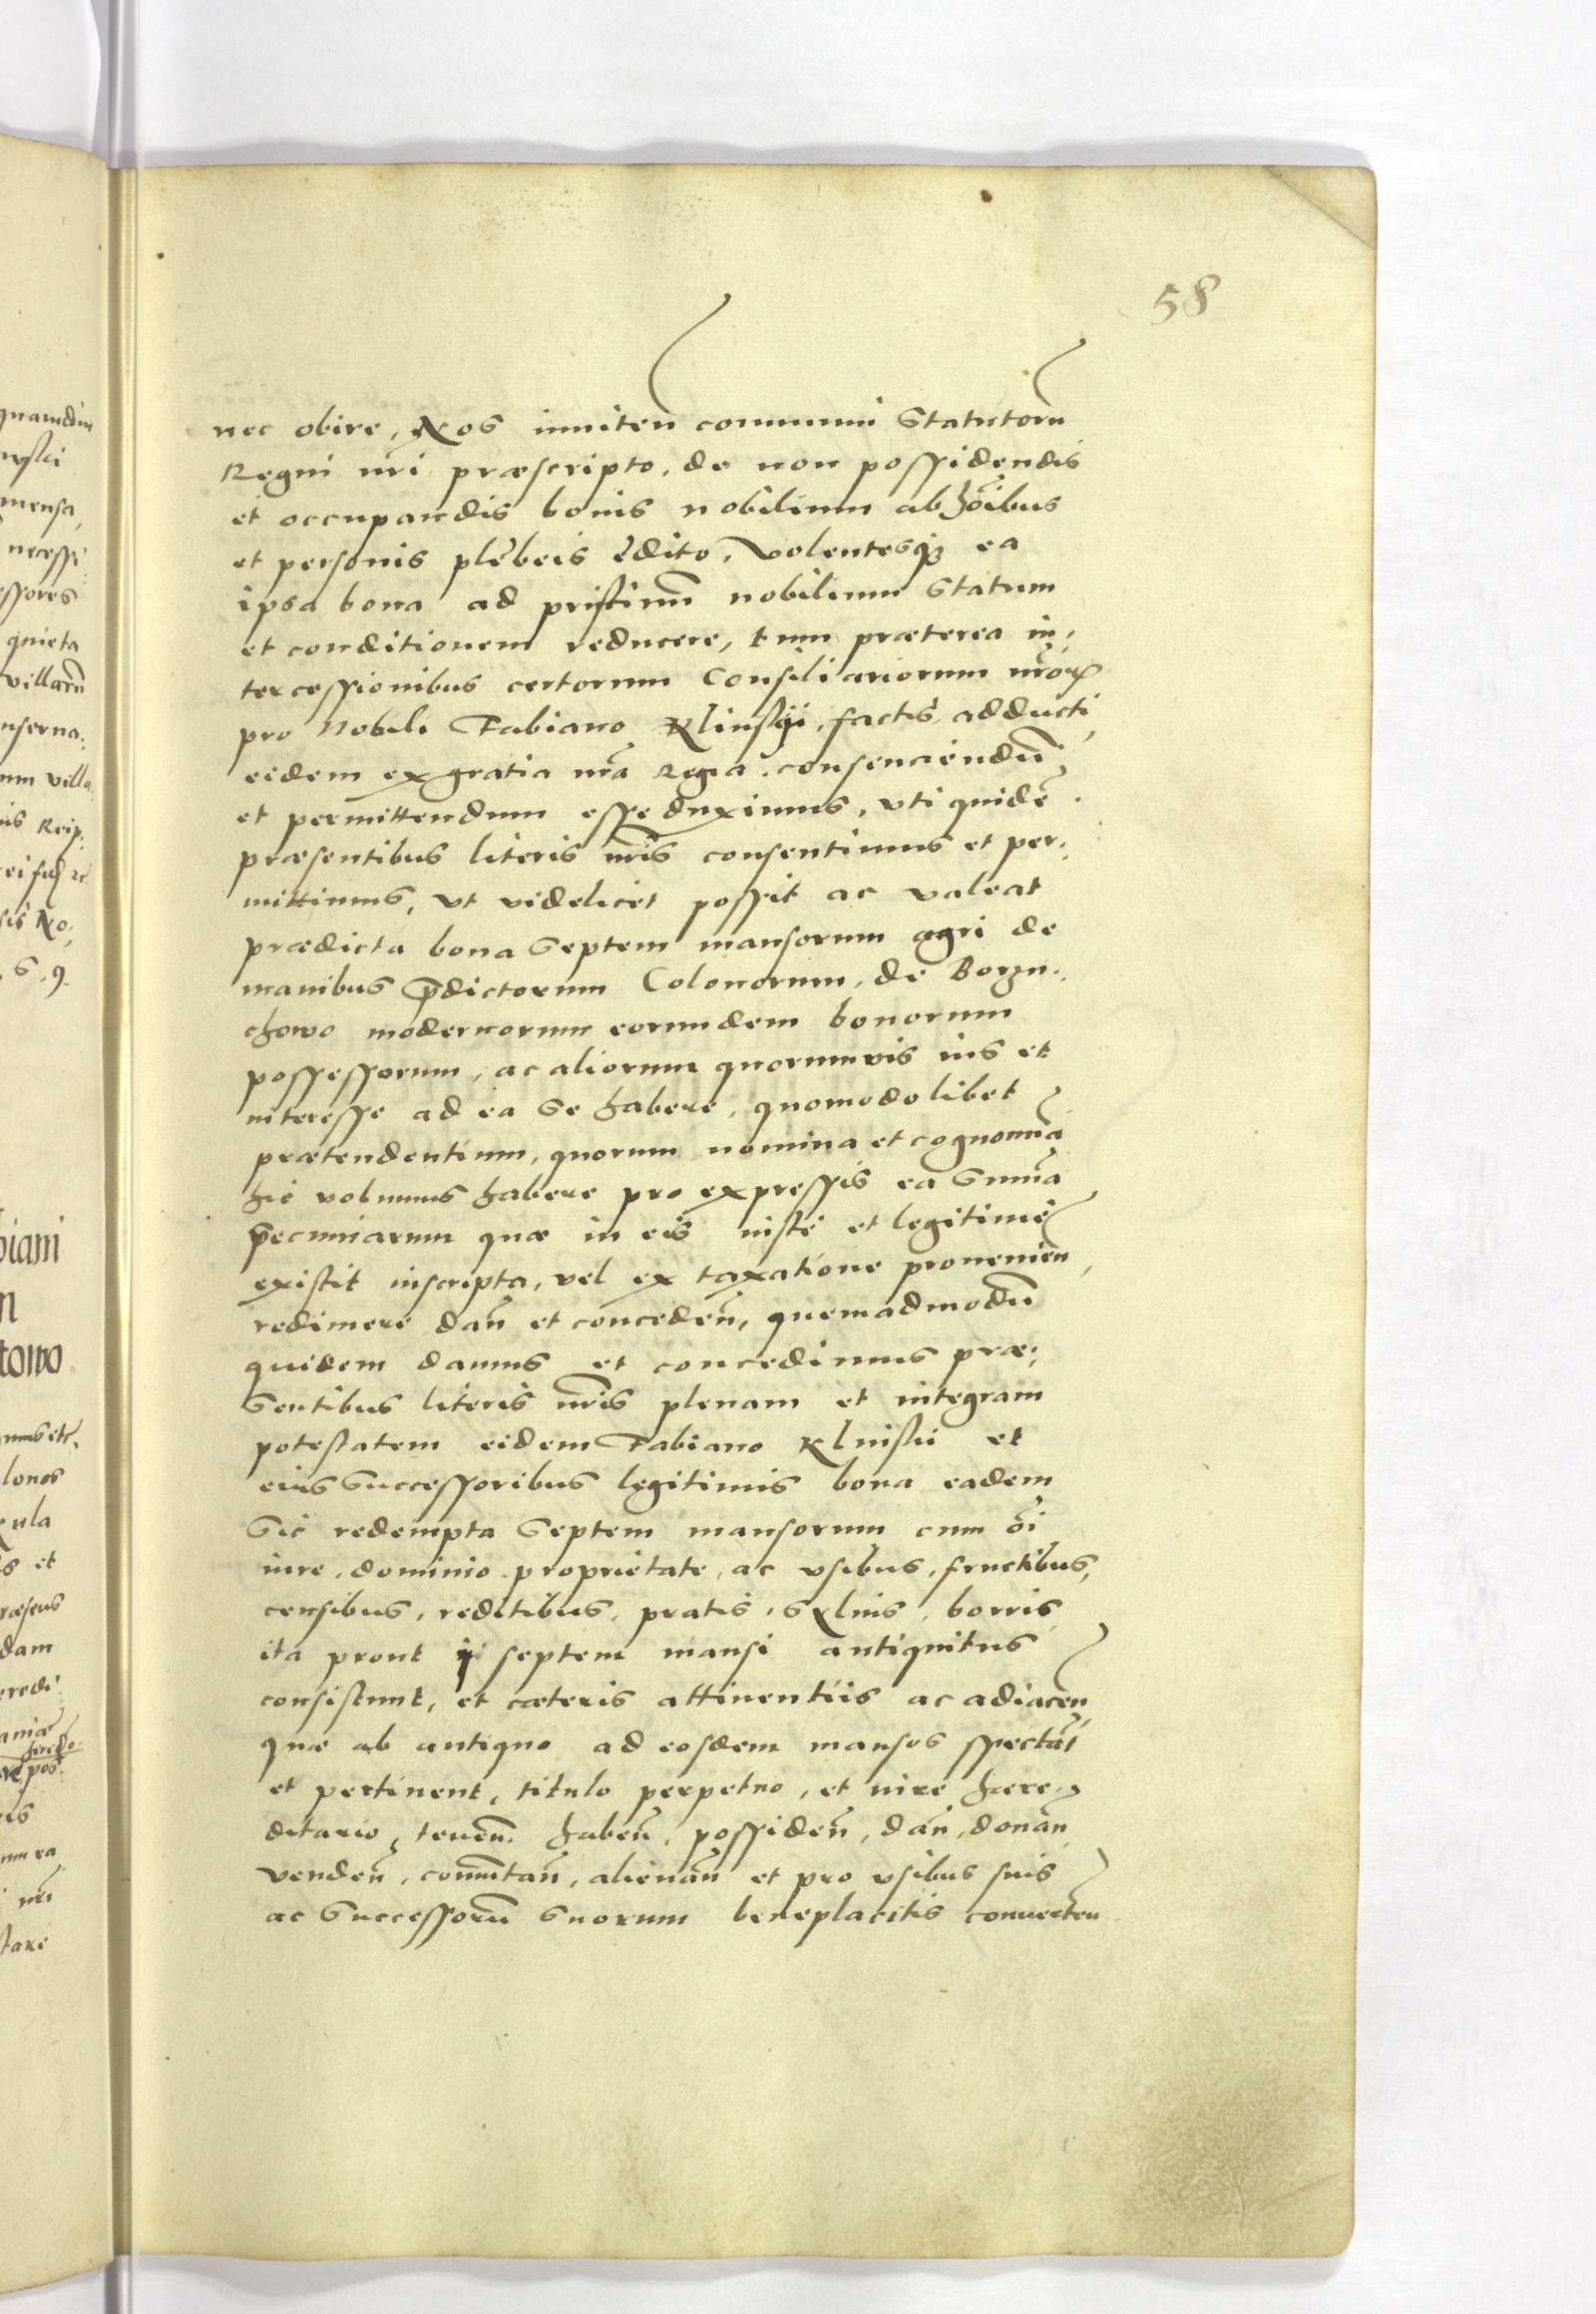 58
nec obire, Nos inniten communi Statutorũ
Regni nr̃i præscripto, de non possidendis
et occupandis bonis nobilium ab hoĩbus
et personis plebeis edito, volentesq₃ ea
ipsa bona ad pristinũ nobilium Statum
et conditionem reducere, tum præterea in,
tercessionibus certorum Consiliariorum nr̃oꝝ
pro Nobili Fabiano Klinskij, factis, adducti,
eidem ex gratia nr̃a Regia consenciendũ,
et permittendum esse duximus, vti quidẽ
præsentibus literis nr̃is consentimus et per:
mittimus, vt videlicet possit ac valeat
prædicta bona Septem mansorum agri de
manibus p̃dictorum Colonorum, de Borzu:
chowo modernorum eorundem bonorum
possessorum, ac aliorum quorumvis ius et
interesse ad ea se habere, quomodolibet
prætendentium, quorum nomina et cognomĩa
hic volumus habere pro expressis ea Sum̃a
pecuniarum quæ in eis iuste et legitime
existit inscripta, vel ex taxatione prouenien,
redimere dan̄ et conceden̄, quemadmodũ
quidem damus et concedimus præ:
sentibus literis nr̃is plenam et integram
potestatem eidem Fabiano Klinskii et
eius Successoribus legitimis bona eadem
Sic redempta Septem mansorum cum õi
iure, dominio proprietate, ac vsibus, fructibus,
censibus, reditibus, pratis, sylvis, borris
ita prout ij septem mansi antiquitus
consistunt, et cæteris attinentiis ac adiacen,
quæ ab antiquo ad eosdem mansos spectãt
et pertinent, titulo perpetuo, et iure hære,
ditario, tenen̄ haben̄, possiden̄, dan̄, donan̄
venden̄, com̃utan̄, alienan̄ et pro vsibus suis
ac Successorũ Suorum beneplacitis conuerten